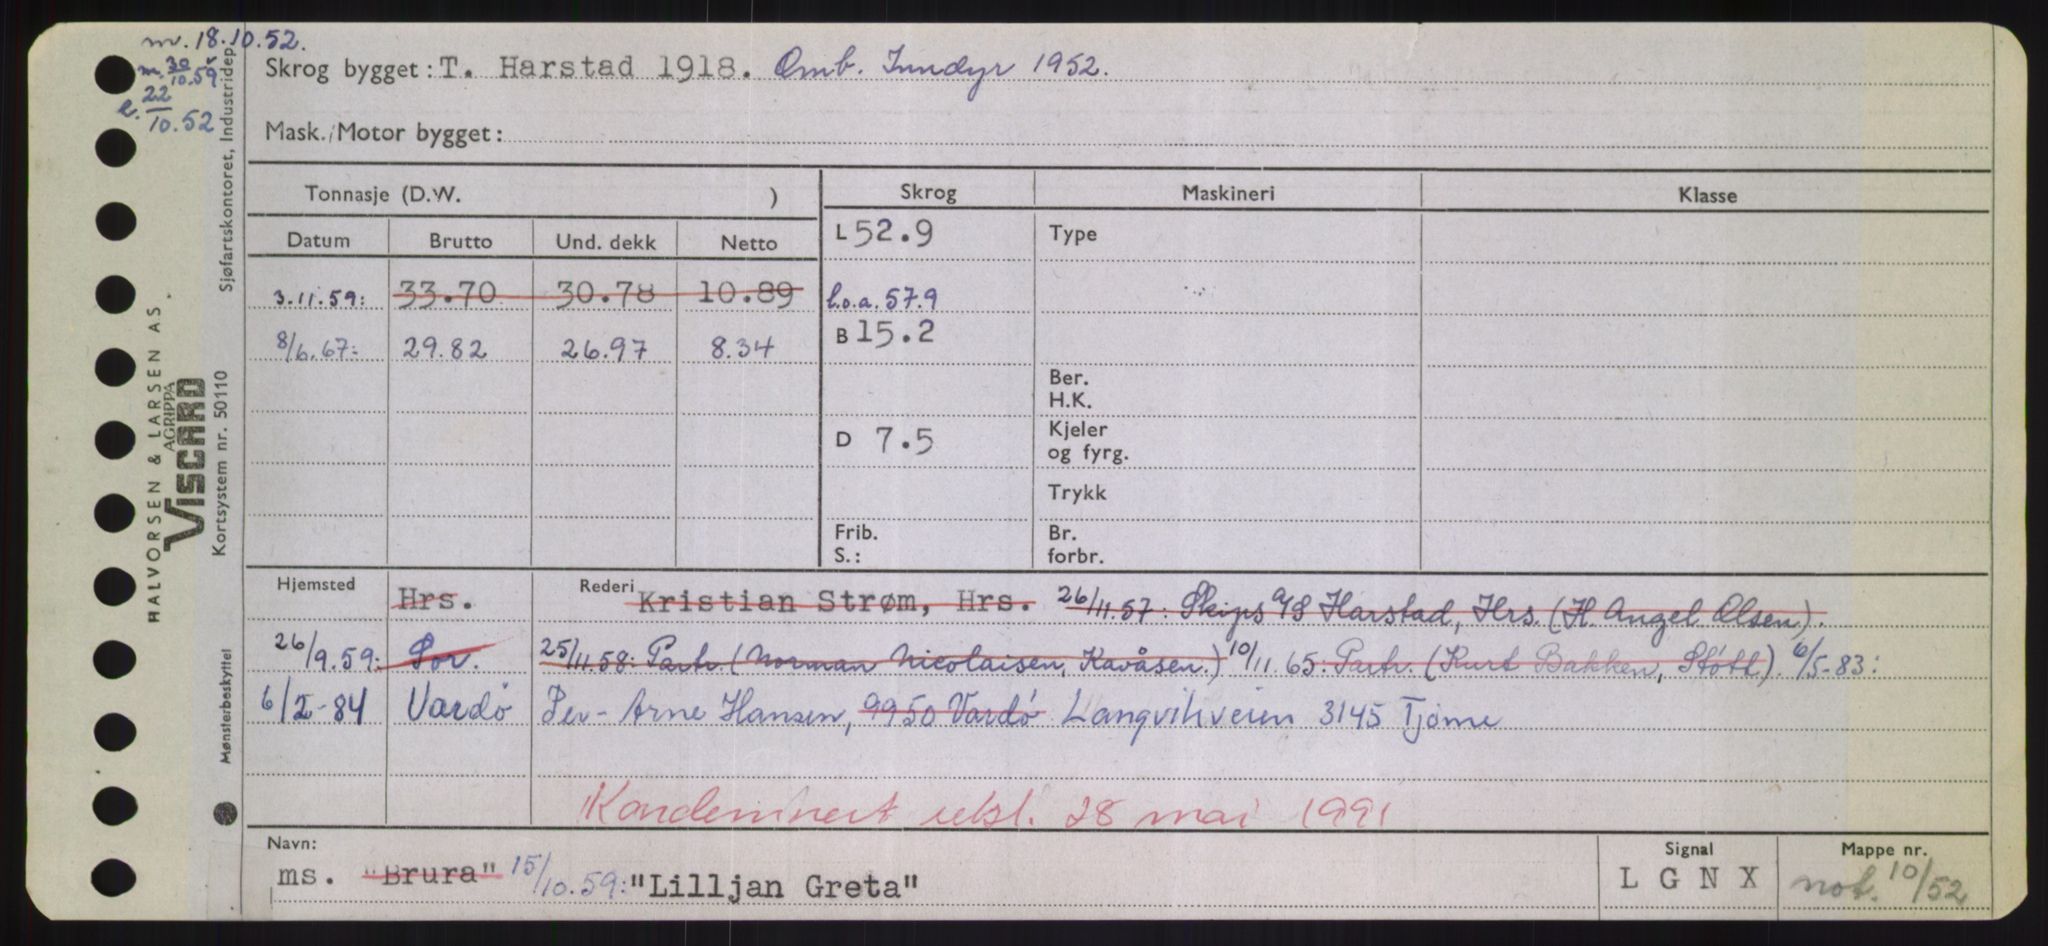 m. 18.10.52.
m. 30/10.59.
e. 22/10.52
Skrog bygget: T. Harstad 1918. Omb. Inndyr 1952.
Mask./Motor bygget:
Tonnasje (D.W. )
Skrog
Maskineri
Klasse
Datum Brutto Und. dekk Netto
L 52.9
Type
3.11.59: 33.70 30.78 10.89
l.o.a. 57.9
8/6.67: 29.82 26.97 8.34
B 15.2
Ber.
H.K.
D 7.5
Kjeler
og fyrg.
Trykk
Frib.
S.:
Br.
forbr.
Hjemsted Hrs. Rederi Kristian Strøm, Hrs. 26/11.57: Skips A/S Harstad, Hrs. (H. Angel Olsen).
26/9.59: Por. 25/11.58: Partr. (Norman Nicolaisen, Kavåsen.) 10/11.65: Partr. (Kurt Bakken, Støtt). 6/5-83:
6/2-84 Vardø Per-Arne Hansen, 9950 Vardø Langvikveien 3145 Tjøme
Kondemnert 28 mai 1991
Navn:
ms. "Brura" 15/10.59: "Lilljan Greta"
Signal
L G N X
Mappe nr.
not. 10/52
HALVORSEN & LARSEN AS.
AGRIPPA
VISCARD
Kortsystem nr. 50110
Sjøfartskontoret, Industridep.
Mønsterbeskyttet